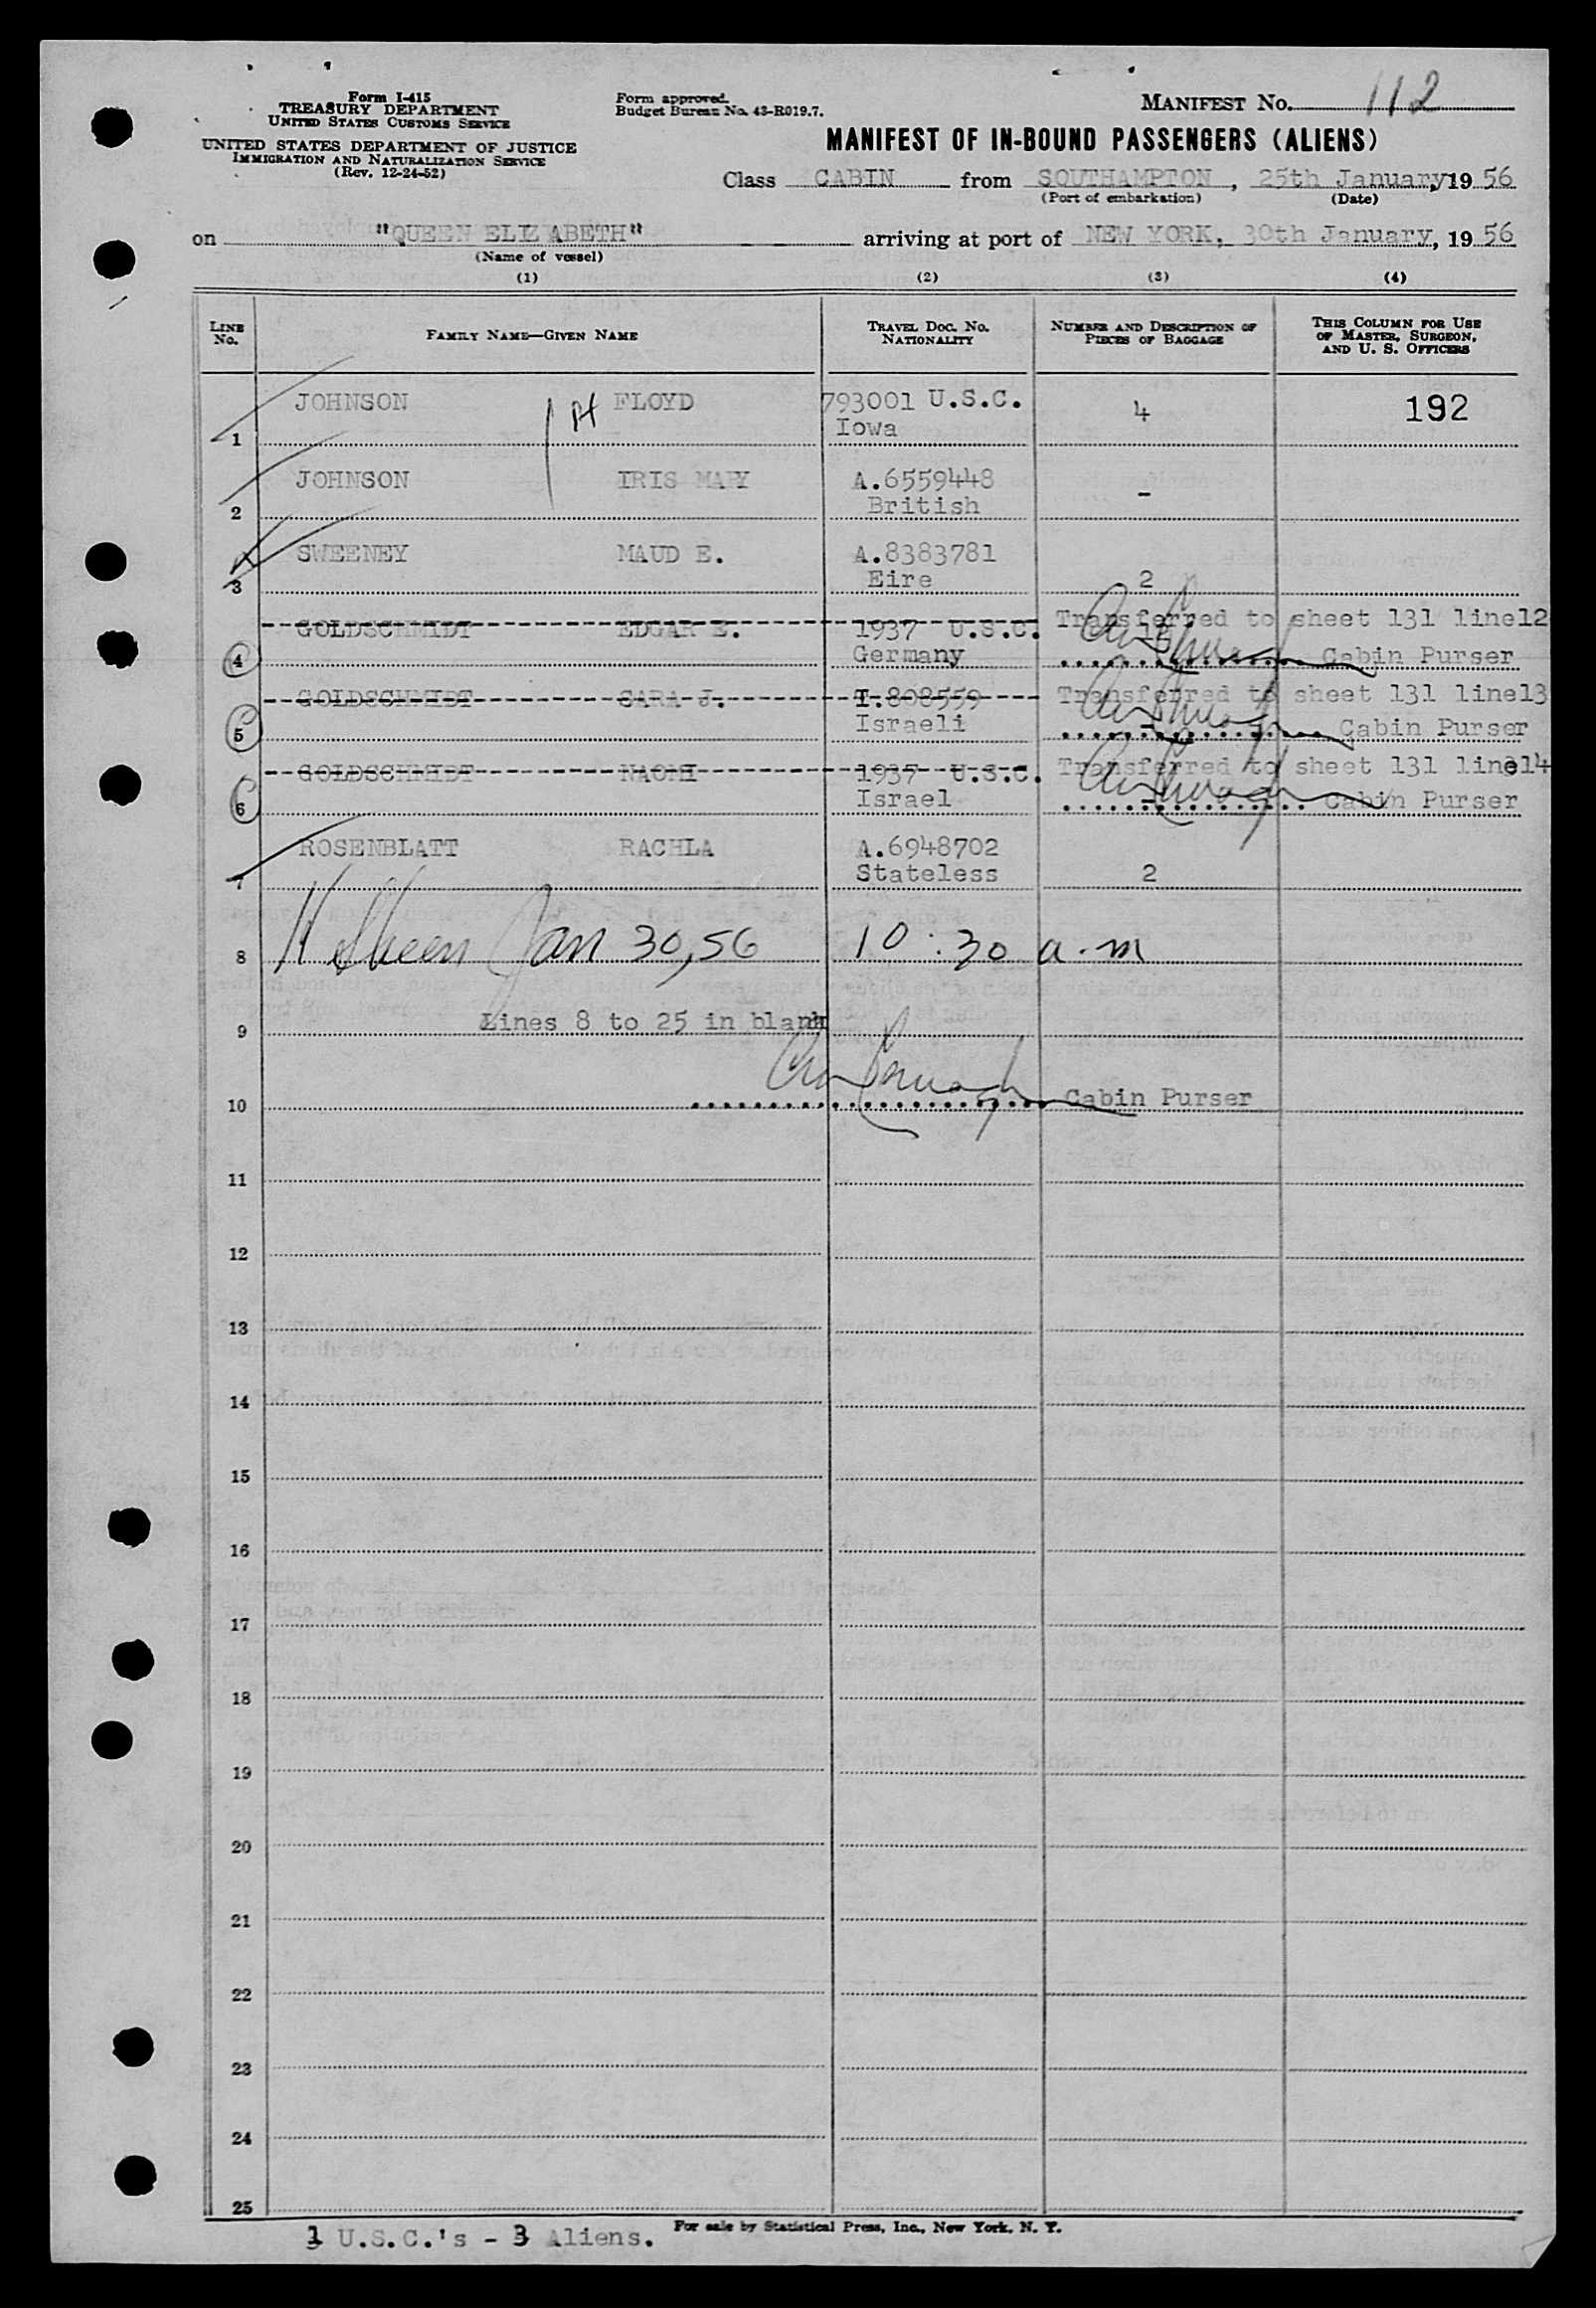 Form I-415
TREASURY DEPARTMENT
UNITED STATES CUSTOMS SERVICE
UNITED STATES DEPARTMENT OF JUSTICE
IMMIGRATION AND NATURALIZATION SERVICE
(Rev. 12-24-52)
Form approved.
Budget Bureau No. 43-R019.7.
MANIFEST No. 112
MANIFEST OF IN-BOUND PASSENGERS (ALIENS)
Class CABIN from SOUTHAMPTON, 25th January, 19 56
(Port of embarkation) (Date)
on "QUEEN ELIZABETH" arriving at port of NEW YORK, 30th January, 19 56
(Name of vessel)
(1) (2) (3) (4)
LINE No. FAMILY NAME—GIVEN NAME TRAVEL DOC. No. NATIONALITY NUMBER AND DESCRIPTION OF PIECES OF BAGGAGE THIS COLUMN FOR USE OF MASTER, SURGEON, AND U. S. OFFICERS
JOHNSON FLOYD 793001 U.S.C. 4 192
1 Iowa
JOHNSON IRIS MARY A.6559448 -
2 British
SWEENEY MAUD E. A.8383781
3 Eire 2
GOLDSCHMIDT EDGAR E. 1937 U.S.C. Transferred to sheet 131 line12
4 Germany Cabin Purser
GOLDSCHMIDT SARA J. I.808559 Transferred to sheet 131 line13
5 Israeli Cabin Purser
GOLDSCHMIDT NAOMI 1937 U.S.C. Transferred to sheet 131 line14
6 Israel Cabin Purser
ROSENBLATT RACHLA A.6948702
7 Stateless 2
8 Jan 30, 56 10:30 a.m
Lines 8 to 25 in blank
9
10 Cabin Purser
11
12
13
14
15
16
17
18
19
20
21
22
23
24
25
1 U.S.C.'s - 3 Aliens. For sale by Statistical Press, Inc., New York, N. Y.